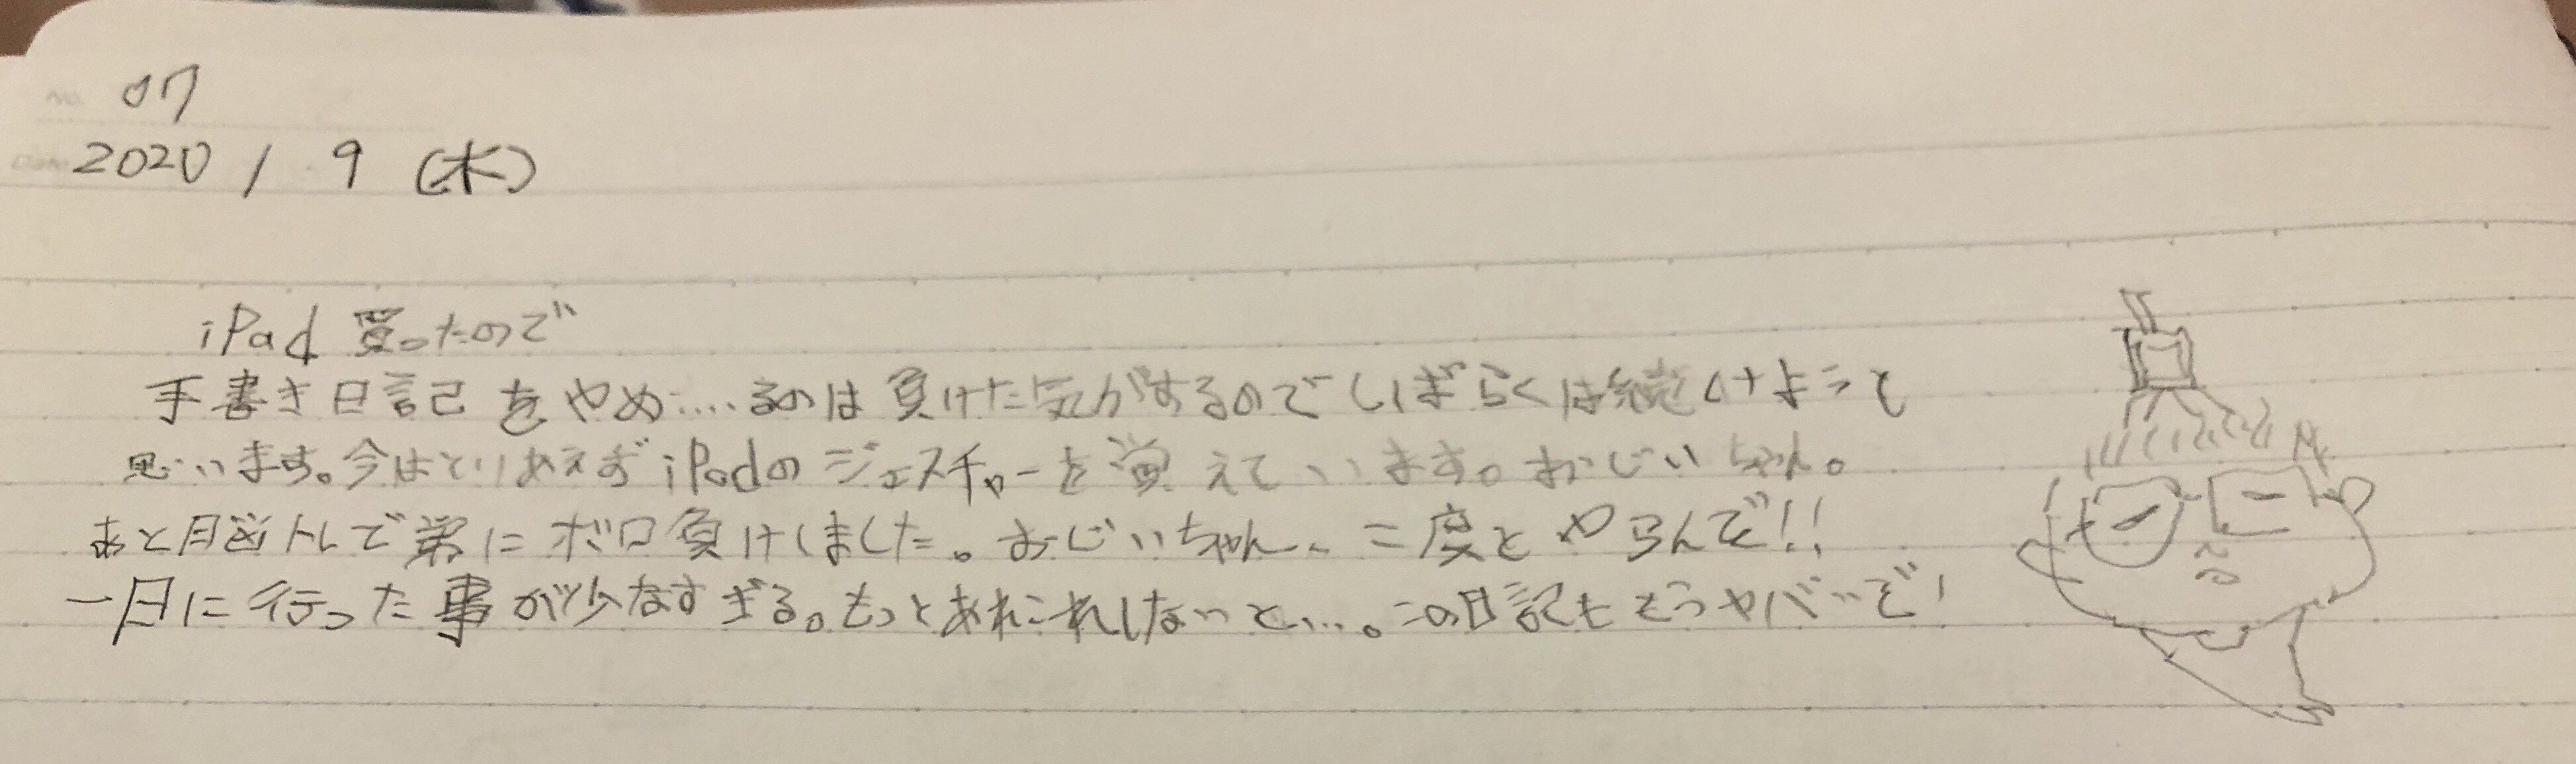 No. 07
Date 2020 / 9 (木)
iPad 買ったので
手書き日記をやめ....るのは負けた気がするのでしばらくは続けようと
思います。今はとりあえずiPadのジェスチャーを覚えています。おじいちゃん。
あと脳トレで弟にボロ負けしました。おじいちゃん、二度とやらんで!!
一日に行った事が少なすぎる。もっとあれこれしないと...。この日記もそうヤバいで!